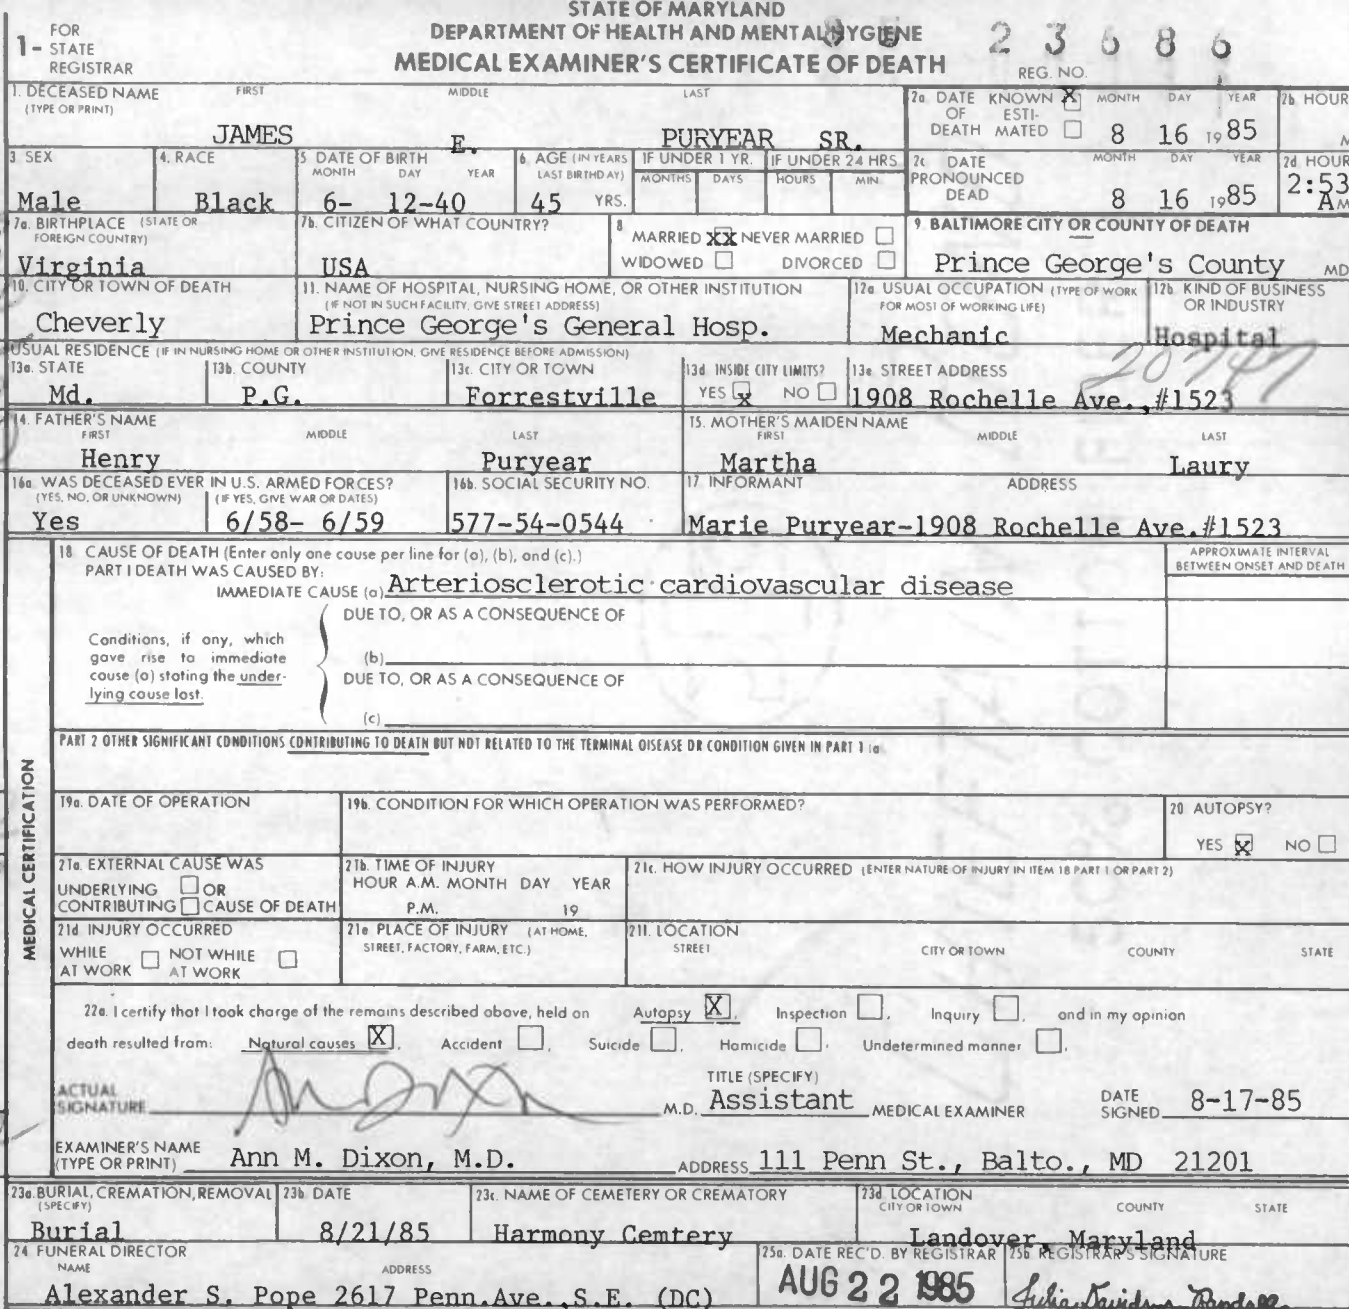 STATE OF MARYLAND
DEPARTMENT OF HEALTH AND MENTAL HYGIENE
MEDICAL EXAMINER'S CERTIFICATE OF DEATH
1- FOR STATE REGISTRAR
23686
REG. NO.
1. DECEASED NAME (TYPE OR PRINT) FIRST MIDDLE LAST
JAMES E. PURYEAR SR.
2a DATE OF DEATH KNOWN X ESTIMATED MONTH DAY YEAR
8 16 1985
2b HOUR M
3 SEX
Male
4. RACE
Black
5 DATE OF BIRTH MONTH DAY YEAR
6- 12-40
6 AGE (IN YEARS LAST BIRTHDAY)
45 YRS.
IF UNDER 1 YR. MONTHS DAYS
IF UNDER 24 HRS HOURS MIN.
2c DATE PRONOUNCED DEAD MONTH DAY YEAR
8 16 1985
2d HOUR
2:53 AM
7a. BIRTHPLACE (STATE OR FOREIGN COUNTRY)
Virginia
7b. CITIZEN OF WHAT COUNTRY?
USA
8 MARRIED XX NEVER MARRIED
WIDOWED DIVORCED
9 BALTIMORE CITY OR COUNTY OF DEATH
Prince George's County MD
10. CITY OR TOWN OF DEATH
Cheverly
11. NAME OF HOSPITAL, NURSING HOME, OR OTHER INSTITUTION
(IF NOT IN SUCH FACILITY, GIVE STREET ADDRESS)
Prince George's General Hosp.
12a USUAL OCCUPATION (TYPE OF WORK FOR MOST OF WORKING LIFE)
Mechanic
12b. KIND OF BUSINESS OR INDUSTRY
Hospital
USUAL RESIDENCE (IF IN NURSING HOME OR OTHER INSTITUTION, GIVE RESIDENCE BEFORE ADMISSION)
13a. STATE
Md.
13b. COUNTY
P.G.
13c. CITY OR TOWN
Forrestville
13d INSIDE CITY LIMITS?
YES X NO
13e STREET ADDRESS
1908 Rochelle Ave.,#1523
20747
14. FATHER'S NAME FIRST MIDDLE LAST
Henry Puryear
15. MOTHER'S MAIDEN NAME FIRST MIDDLE LAST
Martha Laury
16a WAS DECEASED EVER IN U.S. ARMED FORCES?
(YES, NO, OR UNKNOWN) (IF YES, GIVE WAR OR DATES)
Yes 6/58- 6/59
16b. SOCIAL SECURITY NO.
577-54-0544
17 INFORMANT ADDRESS
Marie Puryear-1908 Rochelle Ave.#1523
MEDICAL CERTIFICATION
18 CAUSE OF DEATH (Enter only one cause per line for (a), (b), and (c).)
PART I DEATH WAS CAUSED BY:
IMMEDIATE CAUSE (a) Arteriosclerotic cardiovascular disease
APPROXIMATE INTERVAL BETWEEN ONSET AND DEATH
DUE TO, OR AS A CONSEQUENCE OF
Conditions, if any, which
gave rise to immediate
cause (a) stating the under-
lying cause last.
(b)
DUE TO, OR AS A CONSEQUENCE OF
(c)
PART 2 OTHER SIGNIFICANT CONDITIONS CONTRIBUTING TO DEATH BUT NOT RELATED TO THE TERMINAL DISEASE OR CONDITION GIVEN IN PART 1 (a
19a. DATE OF OPERATION
19b. CONDITION FOR WHICH OPERATION WAS PERFORMED?
20 AUTOPSY?
YES X NO
21a. EXTERNAL CAUSE WAS
UNDERLYING OR
CONTRIBUTING CAUSE OF DEATH
21b. TIME OF INJURY
HOUR A.M. MONTH DAY YEAR
P.M. 19
21c. HOW INJURY OCCURRED (ENTER NATURE OF INJURY IN ITEM 18 PART 1 OR PART 2)
21d INJURY OCCURRED
WHILE AT WORK NOT WHILE AT WORK
21e PLACE OF INJURY (AT HOME, STREET, FACTORY, FARM, ETC.)
21f. LOCATION
STREET CITY OR TOWN COUNTY STATE
22a. I certify that I took charge of the remains described above, held an Autopsy X, Inspection , Inquiry , and in my opinion
death resulted from: Natural causes X, Accident , Suicide , Homicide , Undetermined manner .
ACTUAL SIGNATURE
M.D.
TITLE (SPECIFY)
Assistant MEDICAL EXAMINER
DATE SIGNED 8-17-85
EXAMINER'S NAME (TYPE OR PRINT) Ann M. Dixon, M.D.
ADDRESS 111 Penn St., Balto., MD 21201
23a. BURIAL, CREMATION, REMOVAL (SPECIFY)
Burial
23b DATE
8/21/85
23c. NAME OF CEMETERY OR CREMATORY
Harmony Cemtery
23d LOCATION CITY OR TOWN COUNTY STATE
Landover, Maryland
24 FUNERAL DIRECTOR
NAME ADDRESS
Alexander S. Pope 2617 Penn.Ave.,S.E. (DC)
25a. DATE REC'D. BY REGISTRAR
AUG 22 1985
25b REGISTRAR'S SIGNATURE